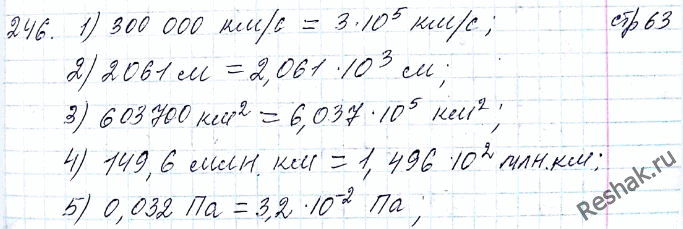 246. 1) 300 000 км/с = 3·10⁵ км/с; стр 63
2) 2061 м = 2,061·10³ м;
3) 603700 км² = 6,037·10⁵ км²;
4) 149,6 млн. км = 1,496·10² млн.км;
5) 0,032 Па = 3,2·10⁻² Па;
Reshak.ru